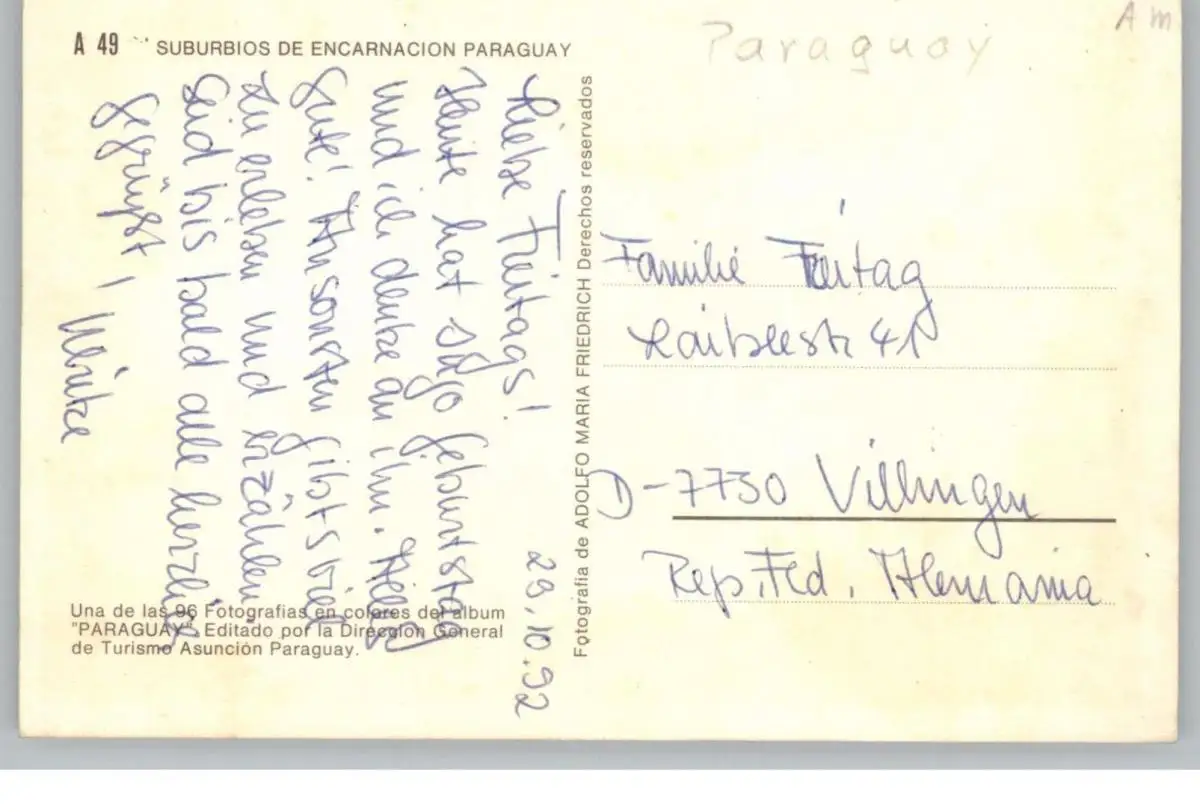 A 49 SUBURBIOS DE ENCARNACION PARAGUAY
Paraguay
Am
Liebe Freitags!
29.10.92
Heute hat Geburtstag
und ich denke an ihn. Alles
Gute! Ansonsten gibt's viel
zu erleben und erzählen!
Seid bis bald alle herzlich
gegrüßt!
Ulrike
Una de las 96 Fotografias en colores del album
"PARAGUAY". Editado por la Dirección General
de Turismo Asunción Paraguay.
Fotografia de ADOLFO MARIA FRIEDRICH Derechos reservados
Familie Freitag
41
D-7730 Villingen
Rep. Fed. Alemania